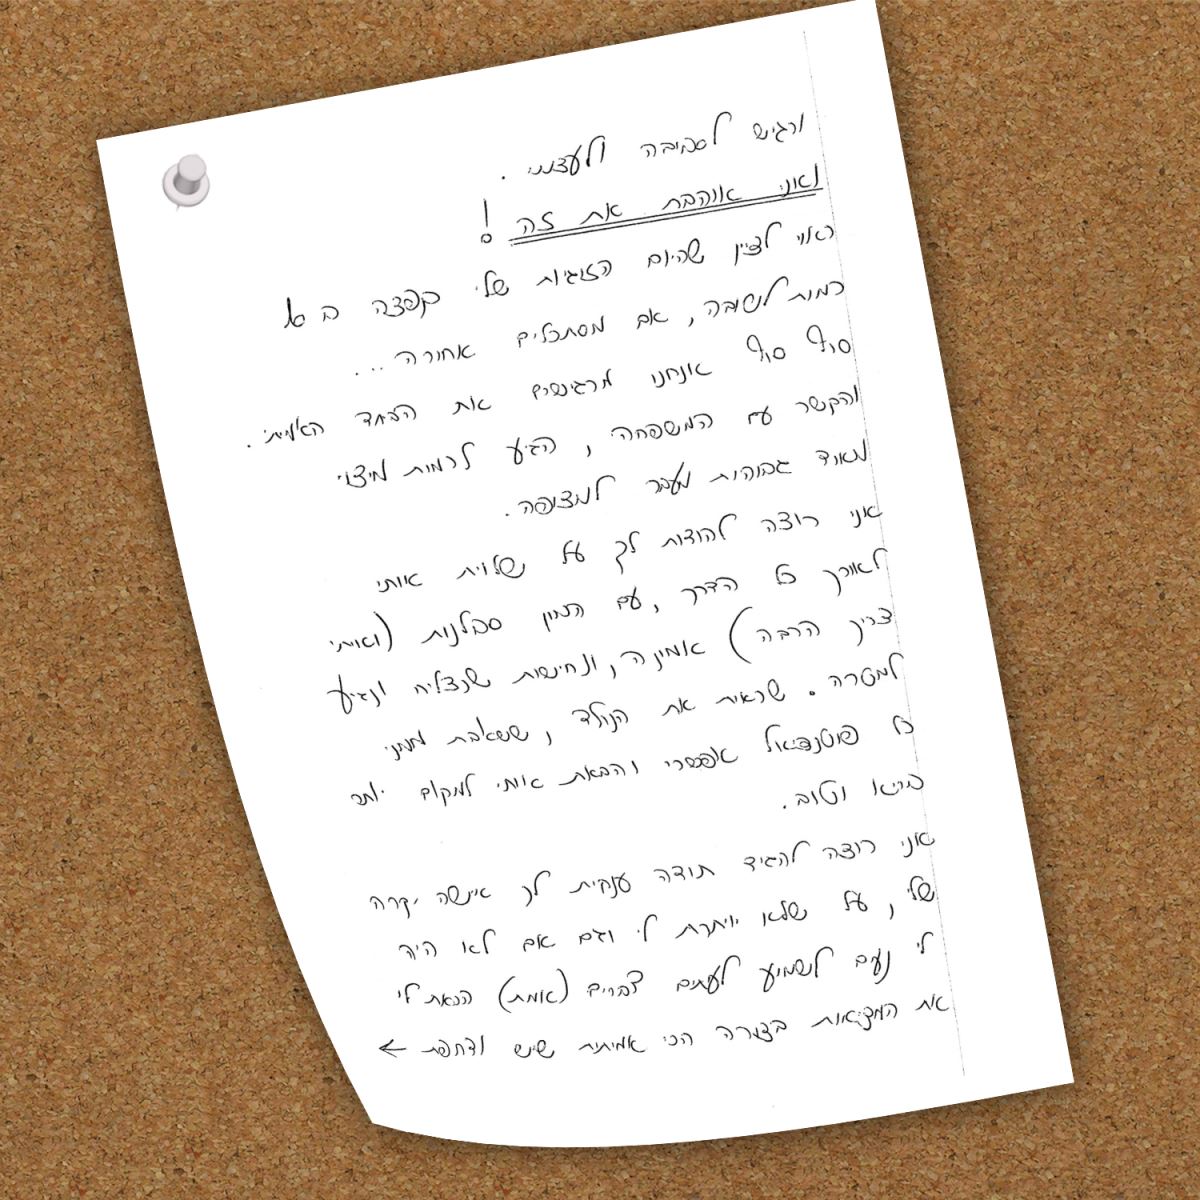 ורגיש לסביבה ולעצמי.
ואני אוהבת את זה!
ראוי לציין שהיום הזוגיות שלי קפצה ב 6
רמות לטובה, אם מסתכלים אחורה...
סוף סוף אנחנו מרגישים את הביחד האמיתי.
והקשר עם המשפחה, הגיע לרמות מיצוי
מאוד גבוהות מעבר למצופה.
אני רוצה להודות לך על שלווית אותי
לאורך כל הדרך, עם המון סבלנות (ואותי
צריך הרבה) אמינה, ונחישות שנצליח ונגיע
למטרה. שראית את הנולד, ששאבת ממני
כל פוטנציאל אפשרי והבאת אותי למקום יותר
בריא וטוב.
אני רוצה להגיד תודה ענקית לך אישה יקרה
שלי, על שלא ויתרת לי וגם אם לא היה
לי נעים לשמוע לעתים דברים (אמת) הבאת לי
את המציאות בצורה הכי אמיתית שיש ודחפת ←